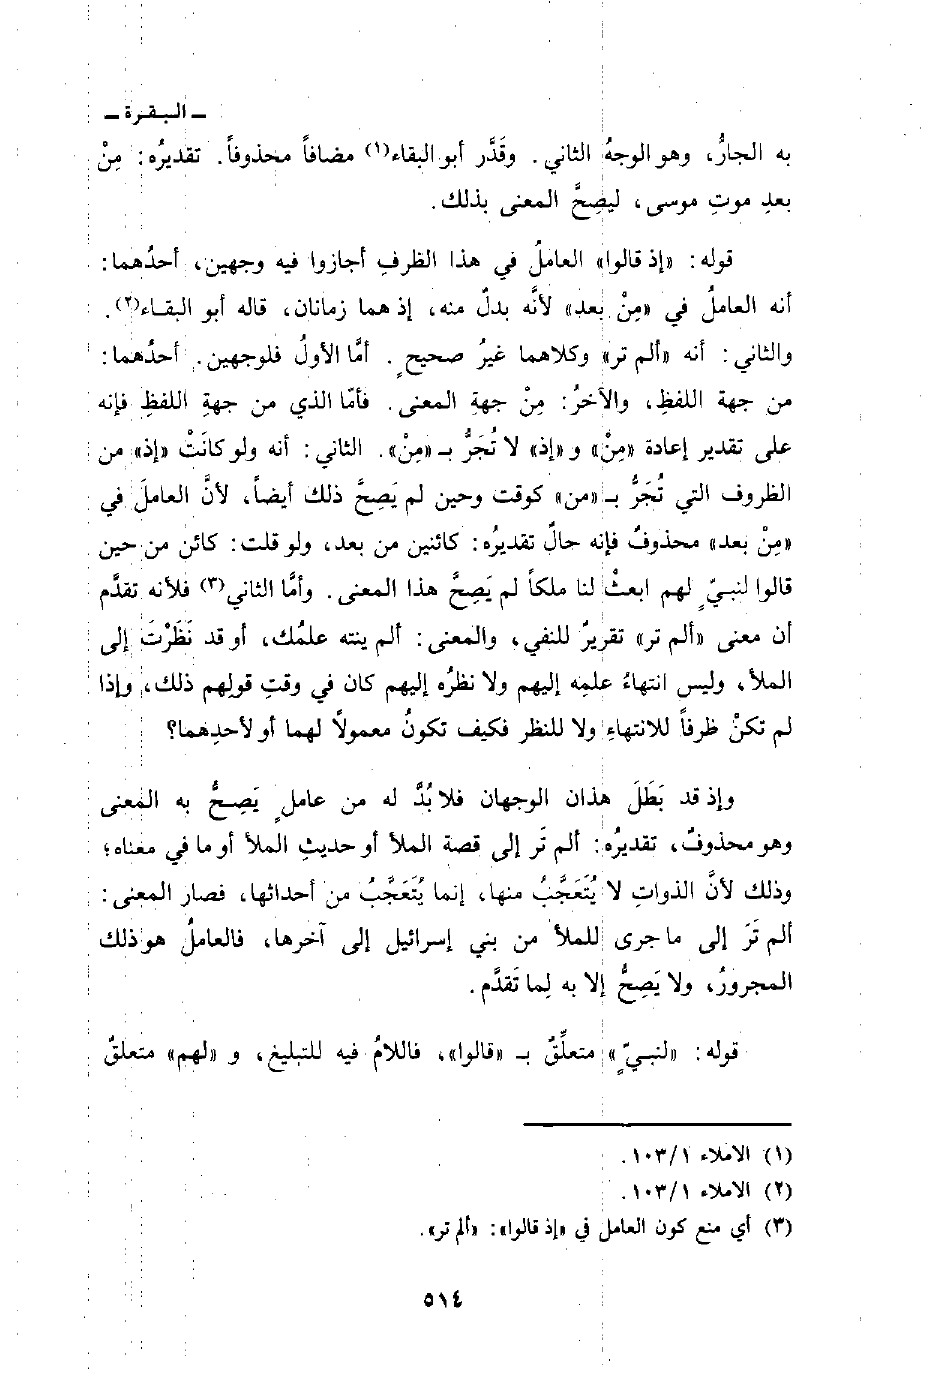 ـ البقرة ـ
به الجارُّ، وهو الوجهُ الثاني. وقَدَّر أبو البقاء(١) مضافاً محذوفاً. تقديرُه: مِنْ
بعدِ موتِ موسى، ليصِحَّ المعنى بذلك.
قوله: «إذ قالوا» العاملُ في هذا الظرفِ أجازوا فيه وجهين، أحدُهما:
أنه العاملُ في «مِنْ بعد» لأنَّه بدلٌ منه، إذ هما زمانان، قاله أبو البقاء(٢).
والثاني: أنه «ألم تر» وكلاهما غيرُ صحيحٍ. أمَّا الأولُ فلوجهين. أحدُهما:
من جهة اللفظِ، والآخرُ: مِنْ جهةِ المعنى. فأمّا الذي من جهةِ اللفظِ فإنه
على تقدير إعادة «مِنْ» و «إذ» لا تُجَرُّ بـ «مِنْ». الثاني: أنه ولو كانَتْ «إذ» من
الظروف التي تُجَرُّ بـ «من» كوقت وحين لم يَصِحَّ ذلك أيضاً، لأنَّ العاملَ في
«مِنْ بعد» محذوفٌ فإنه حالٌ تقديرُه: كائنين من بعد، ولو قلت: كائن من حين
قالوا لنبيّ ٍ لهم ابعثْ لنا ملكاً لم يَصِحَّ هذا المعنى. وأمَّا الثاني(٣) فلأنه تقدَّم
أن معنى «ألم تر» تقريرٌ للنفي، والمعنى: ألم ينته علمُك، أو قد نَظَرْتَ إلى
الملأ، وليس انتهاءُ علمِه إليهم ولا نظرُه إليهم كان في وقتِ قولِهم ذلك، وإذا
لم تكنْ ظرفاً للانتهاءِ ولا للنظر فكيف تكونُ معمولاً لهما أو لأحدِهما؟
وإذ قد بَطَلَ هذان الوجهان فلا بُدَّ له من عاملٍ يَصِحُّ به المعنى
وهو محذوفٌ، تقديرُه: ألم تَر إلى قصة الملأ أو حديثِ الملأ أو ما في معناه؛
وذلك لأنَّ الذواتِ لا يُتَعَجَّبُ منها، إنما يُتَعَجَّبُ من أحداثها، فصار المعنى:
ألم تَرَ إلى ما جرى للملأ من بني إسرائيل إلى آخرها، فالعاملُ هو ذلك
المجرورُ، ولا يَصِحُّ إلا به لِما تَقدَّم.
قوله: «لنبيّ ٍ» متعلِّقٌ بـ «قالوا»، فاللامُ فيه للتبليغ، و «لهم» متعلقٌ
(١) الاملاء ١٠٣/١.
(٢) الاملاء ١٠٣/١.
(٣) أي منع كون العامل في «إذ قالوا»: «ألم تر».
٥١٤